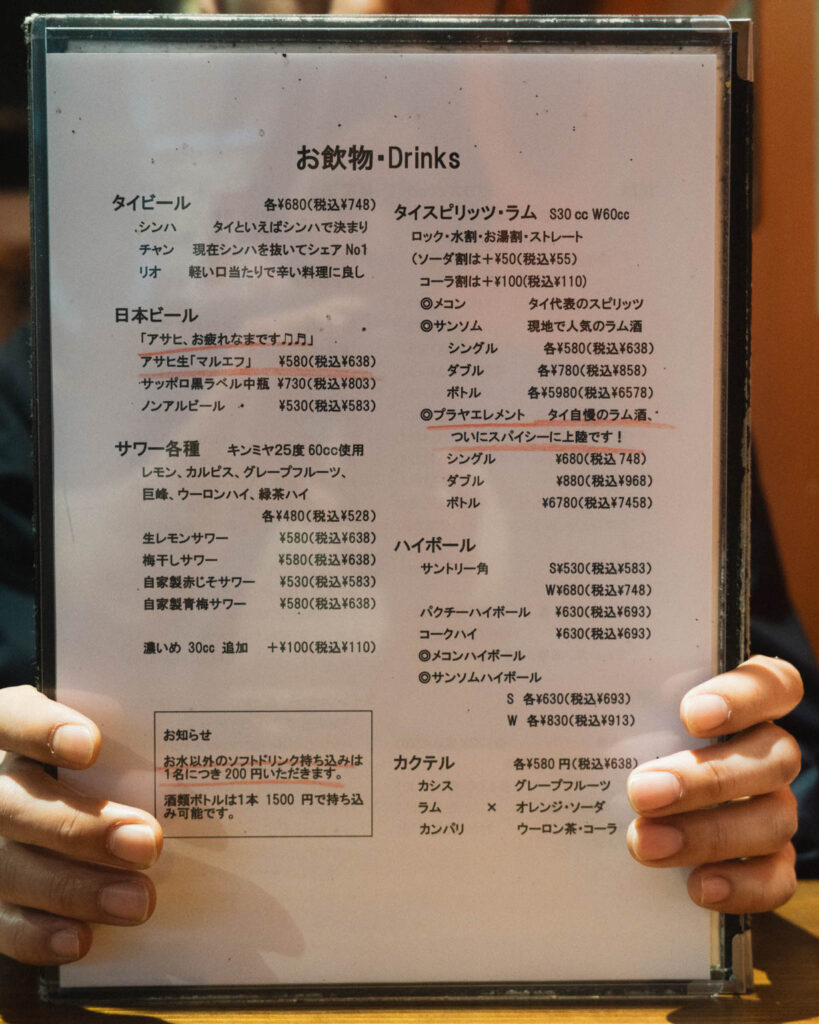 お飲物・Drinks
タイビール 各¥680(税込¥748)
シンハ タイといえばシンハで決まり
チャン 現在シンハを抜いてシェアNo1
リオ 軽い口当たりで辛い料理に良し
日本ビール
「アサヒ、お疲れなまです♫♬」
アサヒ生「マルエフ」 ¥580(税込¥638)
サッポロ黒ラベル中瓶 ¥730(税込¥803)
ノンアルビール ¥530(税込¥583)
サワー各種 キンミヤ25度 60cc使用
レモン、カルピス、グレープフルーツ、
巨峰、ウーロンハイ、緑茶ハイ
各¥480(税込¥528)
生レモンサワー ¥580(税込¥638)
梅干しサワー ¥580(税込¥638)
自家製赤じそサワー ¥530(税込¥583)
自家製青梅サワー ¥580(税込¥638)
濃いめ 30cc 追加 +¥100(税込¥110)
お知らせ
お水以外のソフトドリンク持ち込みは
1名につき200円いただきます。
酒類ボトルは1本 1500 円で持ち込
み可能です。
タイスピリッツ・ラム S30 cc W60cc
ロック・水割・お湯割・ストレート
(ソーダ割は+¥50(税込¥55)
コーラ割は+¥100(税込¥110)
◎メコン タイ代表のスピリッツ
◎サンソム 現地で人気のラム酒
シングル 各¥580(税込¥638)
ダブル 各¥780(税込¥858)
ボトル 各¥5980(税込¥6578)
◎プラヤエレメント タイ自慢のラム酒、
ついにスパイシーに上陸です！
シングル ¥680(税込 748)
ダブル ¥880(税込¥968)
ボトル ¥6780(税込¥7458)
ハイボール
サントリー角 S¥530(税込¥583)
W¥680(税込¥748)
パクチーハイボール ¥630(税込¥693)
コークハイ ¥630(税込¥693)
◎メコンハイボール
◎サンソムハイボール
S 各¥630(税込¥693)
W 各¥830(税込¥913)
カクテル 各¥580 円(税込¥638)
カシス グレープフルーツ
ラム × オレンジ・ソーダ
カンパリ ウーロン茶・コーラ